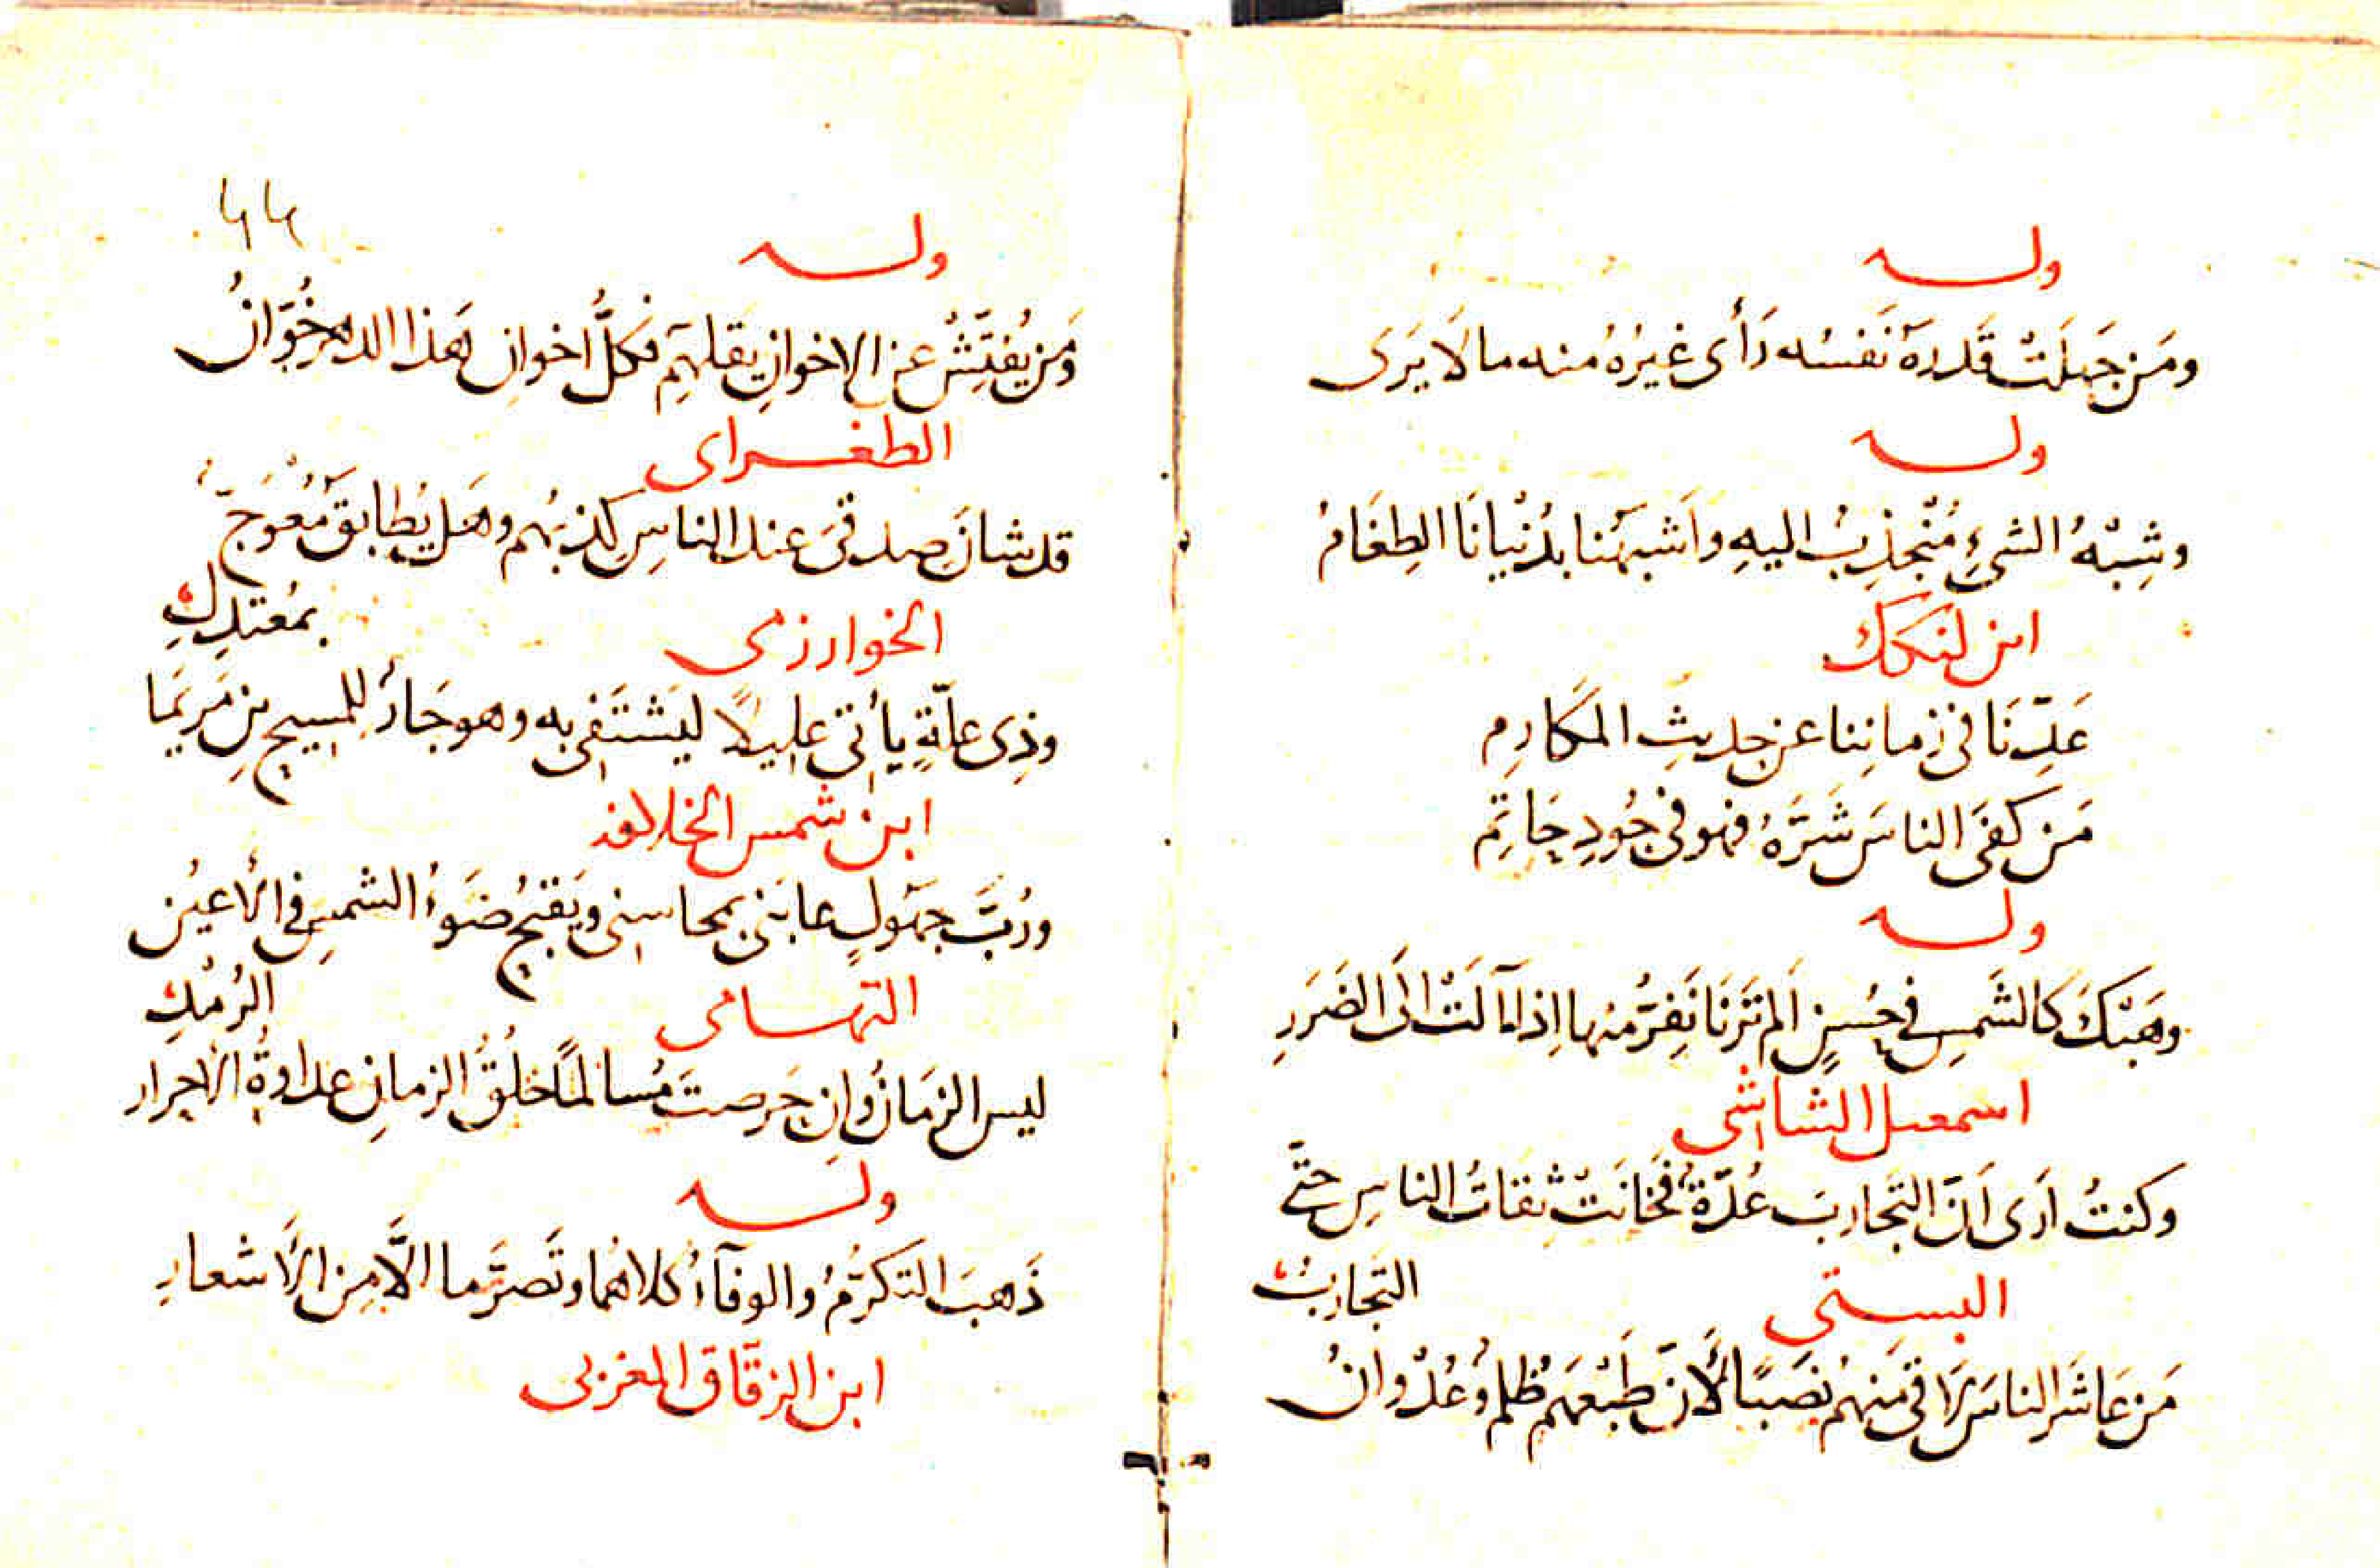 ولــه
ومَن جَهِلَتْ قَدرَهُ نَفسُه رَأى غيرُهُ منه ما لا يَرَى
ولــه
وشِبْهُ الشيءِ مُنْجذِبٌ اليهِ واَشبهُنا بدُنْيانَا الطِغَامُ
ابن لنكك
عَدِّنَا فى زمانِنا عن حديثِ المكَارِم
مَن كفَى الناسَ شَرَّهُ فهو فى جُودِ حَاتِم
ولــه
وهَبْكَ كالشَمسِ فى حُسنٍ اَلم تَرَنَا نَفِرُّ منها اِذا مالَتْ الىَ الضَرَرِ
اسمعيل الشاشى
وكنتُ اَرى اَنَّ التَجاربَ عُدّةٌ فخَانَتْ ثِقاتُ الناسِ حتَّى
التَجاربُ
البستى
مَن عَاشَر الناسَ لاقى مَنهُم نصَبًا لأَنّ طَبْعهَم ظلمٌ وعُدْوانُ
٤٤
ولــه
وَمَن يُفتِّشُ عن الاخوانِ يَقلهِم فكلُّ اخوانِ هَذا الدهرِ خُوَّانُ
الطغــراى
قد شانَ صدقىَ عند الناسِ كذبُهم وهَل يُطابقَ مُعْوَجّ
بمُعْتدِلِ
الخوارزمى
وذِى علّةٍ يأتى عليلًا ليَشْتَفى به وهو جَارٌ للمسيح بنِ مَريَما
ابن شمس الخلافه
ورُبَّ جهَولٍ عابَنى بمحاسِنى ويَقبحُ ضَوءُ الشمسِ فى الأعيُن
الرُمْدِ
التهــامى
ليس الزمَانُ وان حَرصتَ مُسالمًا خلُقُ الزمانِ عداوةُ الأحرار
ولــه
ذَهبَ التكرّمُ والوفآءُ كلاهُما وتَصرّمَا الاَّ مِن الأَشعارِ
ابن الزقاق المغربى